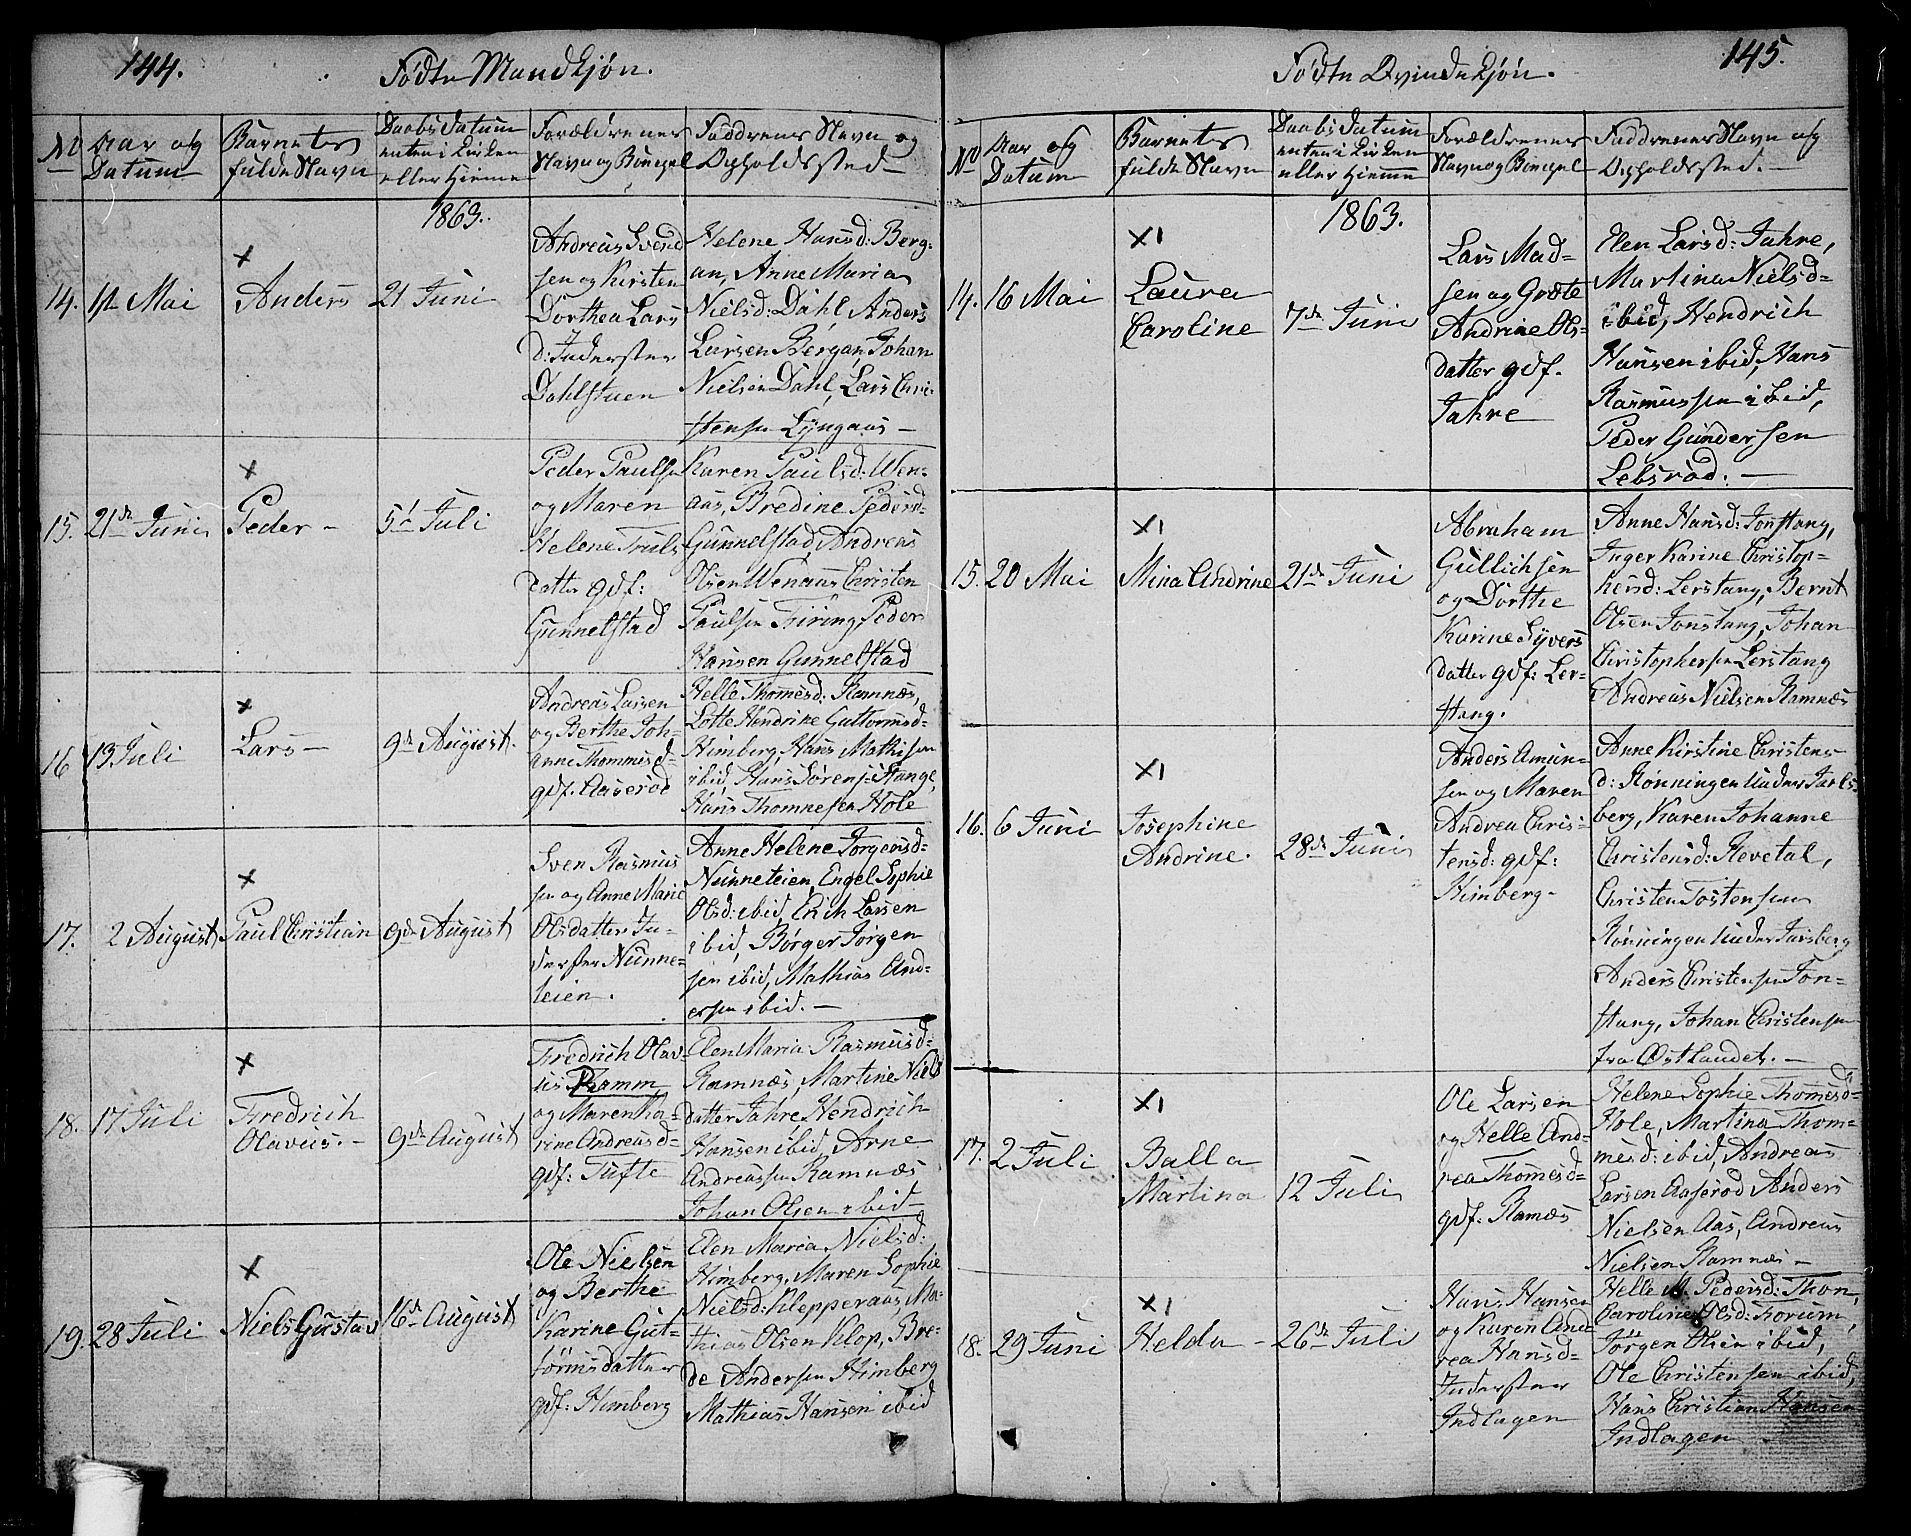 144.
Födte Mandkjön.
No
Aar og
Datum
Barnets
fulde Navn
Daabs Datum
enten i Kirken
eller Hjemme
Forældrenes
Navn og Bonepel
Faddrenes Navn og
Opholdssted –
1863.
14.
11te Mai
×
Anders
21 Juni
Andreas Svend
sen og Kirsten
Dorthea Lars
d: Inderster
Dahlstuen
Helene Hansd: Berg-
an, Anne Maria
Nielsd: Dahl Anders
Larsen Bergan Johan
Nielsen Dahl, Lars Chri-
stensen Lÿngaas –
15.
21de Juni
×
Peder –
5te Juli
Peder Paulsen
og Maren
Helene Truls
datter gdf:
Gunnelstad
Karen Paulsd: Wen-
aas, Bredine Pedersd-
Gunnelstad, Andreas
Olsen Wenaas Christen
Paulsen Firing, Peder
Hansen Gunnelstad
16
13 Juli
×
Lars –
9de August.
Andreas Larsen
og Berthe Joh-
anne Thommesd-
gdf: Aaserød
Helle Thomesd: Ramnæs,
Lotte Hendrike Guttormsd-
Himberg, Hans Mathisen
ibid, Hans Sørens: Stange,
Hans Thommesen Hole
17.
2 August
×
Paul Christian
9de August
Sven Rasmus
sen og Anne Marie
Olsdatter In-
derster Nunne-
teien.
Anne Helene Jorgensd-
Nunneteien, Engel Sophie
Olsd: ibid, Erich Larsen
ibid, Børger Jørgen
sen ibid, Mathias And-
ersen ibid. –
18.
17 Juli
×
Fredrich
Olavus. –
9de August
Fredrich Olav-
us Ramm
og Maren Ka-
rine Andreasd-
gdf: Tufte
Elen Maria Rasmusd-
Ramnæs, Martine Niels
datter Jahre Hendrich
Hansen ibid, Arne
Andreassen Ramnæs
Johan Olsen ibid –
19.
28 Juli
×
Niels Gustav
16de August
Ole Nielsen
og Berthe
Karine Gut-
tormsdatter
gdf: Himberg
Elen Maria Nielsd:
Himberg, Maren Sophie
Nielsd: Klepperaas, Ma-
thias Olsen Klop, Bre-
de Andersen Himberg
Mathias Hansen ibid
145.
Födte Qvindekjön.
No
Aar og
Datum
Barnets
fulde Navn
Daabs Datum
enten i Kirken
eller Hjemme
Forældrenes
Navn og Bonepel
Faddrenes Navn og
Opholdssted. –
1863.
14.
16 Mai
×1
Laura
Caroline
7de Juni
Lars Mad-
sen og Grete
Andrine Ols-
datter gdf.
Jahre
Elen Larsd: Jahre,
Martina Nielsd-
ibid, Hendrich
Hansen ibid, Hans
Rasmussen ibid,
Peder Gundersen
Lebsrød: –
15.
20 Mai
×1
Mina Andrine
21de Juni
Abraham
Gullichsen
og Dorthe
Karine Syvers
datter gdf: Ler-
stang.
Anne Hansd: Jonstang,
Inger Karine Christop-
hersd: Lerstang, Bernt
Olsen Jonstang, Johan
Christophersen Lerstang
Andreas Nielsen Ramnæs
16.
6 Juni
×1
Josephine
Andrine.
28de Juni
Anders Amun-
sen og Maren
Andrea Chris-
tensd: gdf:
Himberg –
Anne Kirstine Christens-
d: Rönningen under Jarls-
berg, Karen Johanne
Christensd: Revetal,
Christen Tostensen
Rönningen under Jarsberg
Anders Christensen Jon-
stang, Johan Christensen
fra Østlandet. –
17.
2 Juli
×1
Balla
Martina
12 Juli
Ole Larsen
og Helle And-
rea Thomesd-
gdf: Ramæs
Helene Sophie Thomesd-
Hole, Martina Thom-
mesd: ibid, Andreas
Larsen Aaserød Anders
Nielsen Aas, Andreas
Nielsen Ramnæs –
18.
29 Juni
×1
Helda –
26de Juli
Hans Hansen
og Karen And-
rea Hansd-
Inderster
Indlagen
Helle M. Pedersd: Thon,
Caroline Olsd: Forum,
Jörgen Olsen ibid,
Ole Christensen ibid,
Hans Christian Hansen
Indlagen –